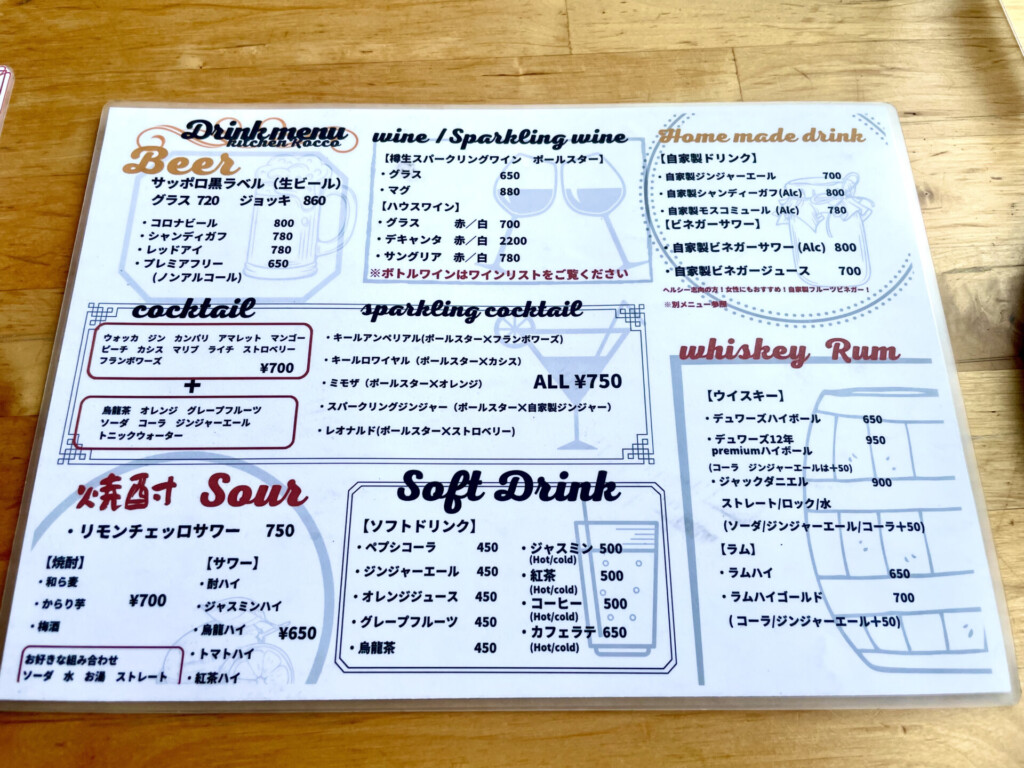 Drink menu
kitchen Rocco
Beer
サッポロ黒ラベル（生ビール）
グラス 720 ジョッキ 860
・コロナビール 800
・シャンディガフ 780
・レッドアイ 780
・プレミアフリー 650
(ノンアルコール)
wine / Sparkling wine
【樽生スパークリングワイン ポールスター】
・グラス 650
・マグ 880
【ハウスワイン】
・グラス 赤／白 700
・デキャンタ 赤／白 2200
・サングリア 赤／白 780
※ボトルワインはワインリストをご覧ください
Home made drink
【自家製ドリンク】
・自家製ジンジャーエール 700
・自家製シャンディーガフ(Alc) 800
・自家製モスコミュール (Alc) 780
【ビネガーサワー】
・自家製ビネガーサワー (Alc) 800
・自家製ビネガージュース 700
ヘルシー志向の方！女性にもおすすめ！自家製フルーツビネガー！
※別メニュー参照
cocktail
ウォッカ ジン カンパリ アマレット マンゴー
ピーチ カシス マリブ ライチ ストロベリー
フランボワーズ
¥700
+
烏龍茶 オレンジ グレープフルーツ
ソーダ コーラ ジンジャーエール
トニックウォーター
sparkling cocktail
・キールアンペリアル(ポールスター×フランボワーズ)
・キールロワイヤル（ポールスター×カシス）
・ミモザ（ポールスター×オレンジ）
ALL ¥750
・スパークリングジンジャー（ポールスター×自家製ジンジャー）
・レオナルド(ポールスター×ストロベリー)
whiskey Rum
【ウイスキー】
・デュワーズハイボール 650
・デュワーズ12年 950
premiumハイボール
(コーラ ジンジャーエールは+50)
・ジャックダニエル 900
ストレート/ロック/水
(ソーダ/ジンジャーエール/コーラ+50)
【ラム】
・ラムハイ 650
・ラムハイゴールド 700
( コーラ/ジンジャーエール+50)
焼酎 Sour
・リモンチェッロサワー 750
【焼酎】
・和ら麦
・からり芋
・梅酒
¥700
お好きな組み合わせ
ソーダ 水 お湯 ストレート
【サワー】
・酎ハイ
・ジャスミンハイ
・烏龍ハイ
・トマトハイ
・紅茶ハイ
¥650
Soft Drink
【ソフトドリンク】
・ペプシコーラ 450
・ジンジャーエール 450
・オレンジジュース 450
・グレープフルーツ 450
・烏龍茶 450
・ジャスミン 500
(Hot/cold)
・紅茶 500
(Hot/cold)
・コーヒー 500
(Hot/cold)
・カフェラテ 650
(Hot/cold)